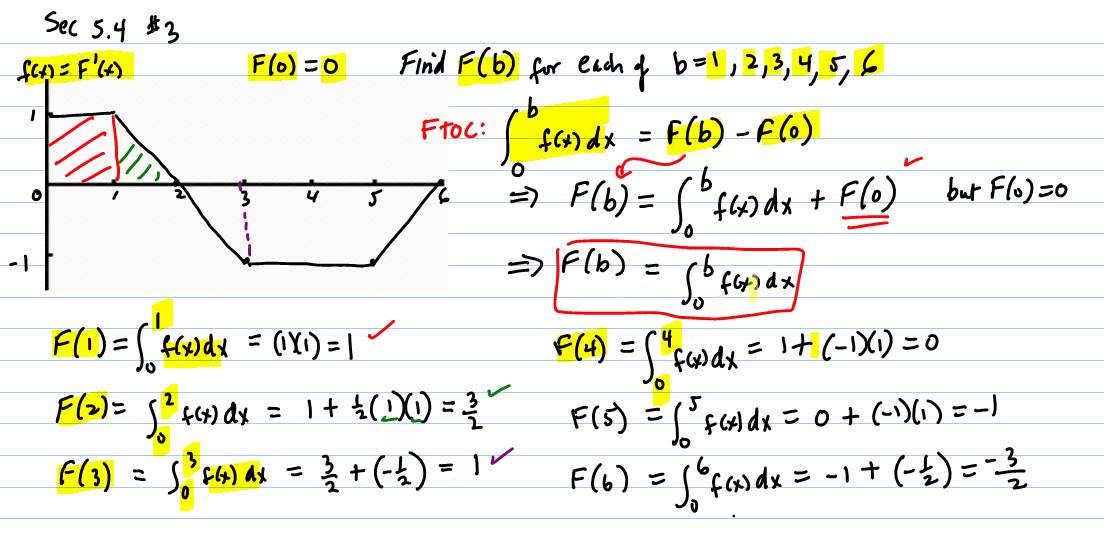 Sec 5.4 #3
f(x) = F'(x) F(0) = 0 Find F(b) for each of b = 1, 2, 3, 4, 5, 6
1
FTOC: ∫₀ᵇ f(x) dx = F(b) - F(0)
0 1 2 3 4 5 6
⇒ F(b) = ∫₀ᵇ f(x) dx + F(0) but F(0) = 0
-1
⇒ F(b) = ∫₀ᵇ f(x) dx
F(1) = ∫₀¹ f(x) dx = (1)(1) = 1 ✓
F(2) = ∫₀² f(x) dx = 1 + 1/2 (1)(1) = 3/2 ✓
F(3) = ∫₀³ f(x) dx = 3/2 + (-1/2) = 1 ✓
F(4) = ∫₀⁴ f(x) dx = 1 + (-1)(1) = 0
F(5) = ∫₀⁵ f(x) dx = 0 + (-1)(1) = -1
F(6) = ∫₀⁶ f(x) dx = -1 + (-1/2) = -3/2